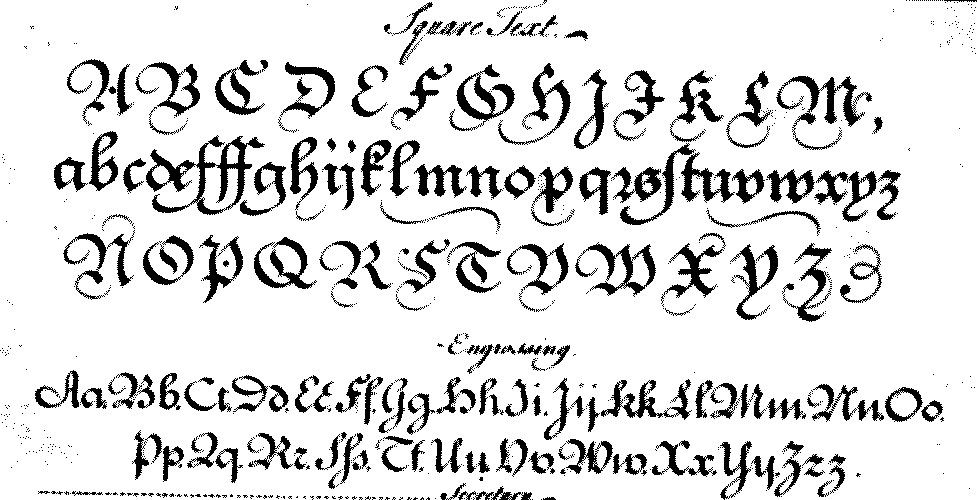 Square Text.
A B C D E F G H J I K L M,
abcdefffghijklmnopqrsſtuvwxyz
N O P Q R S T V W X Y Z
Engrossing.
Aa. Bb. Cc. Dd. Ee. Ff. Gg. Hh. Ii. Jj. Kk. Ll. Mm. Nn. Oo.
Pp. Qq. Rr. Sſs. Tt. Uu. Vv. Ww. Xx. Yy. Zz.
Secretary